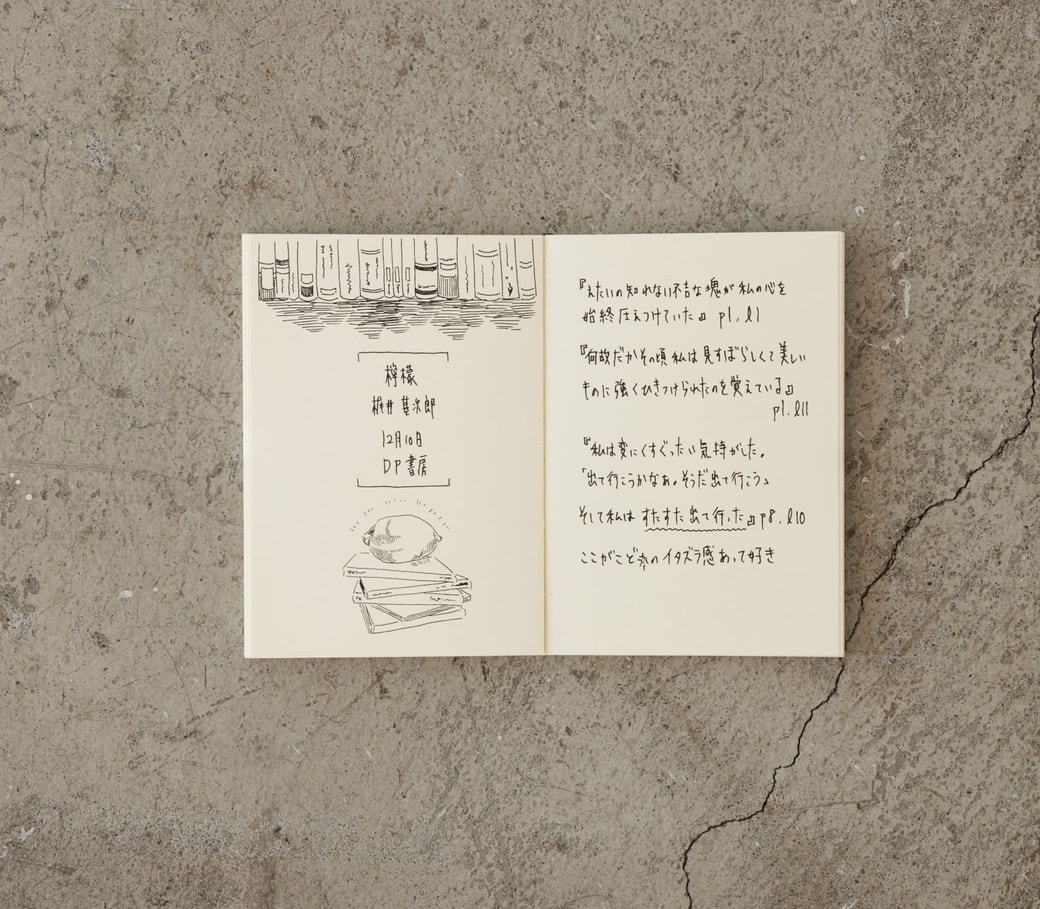 檸檬
梶井基次郎
12月10日
DP書房
『えたいの知れない不吉な塊が私の心を
始終圧えつけていた』 p1, l1
『何故だかその頃私は見すぼらしくて美しい
ものに強くひきつけられたのを覚えている』
p1. l11
『私は変にくすぐったい気持がした。
「出て行こうかなあ。そうだ出て行こう」
そして私は すたすた出て行った』p8. l10
ここがこどものイタズラ感あって好き